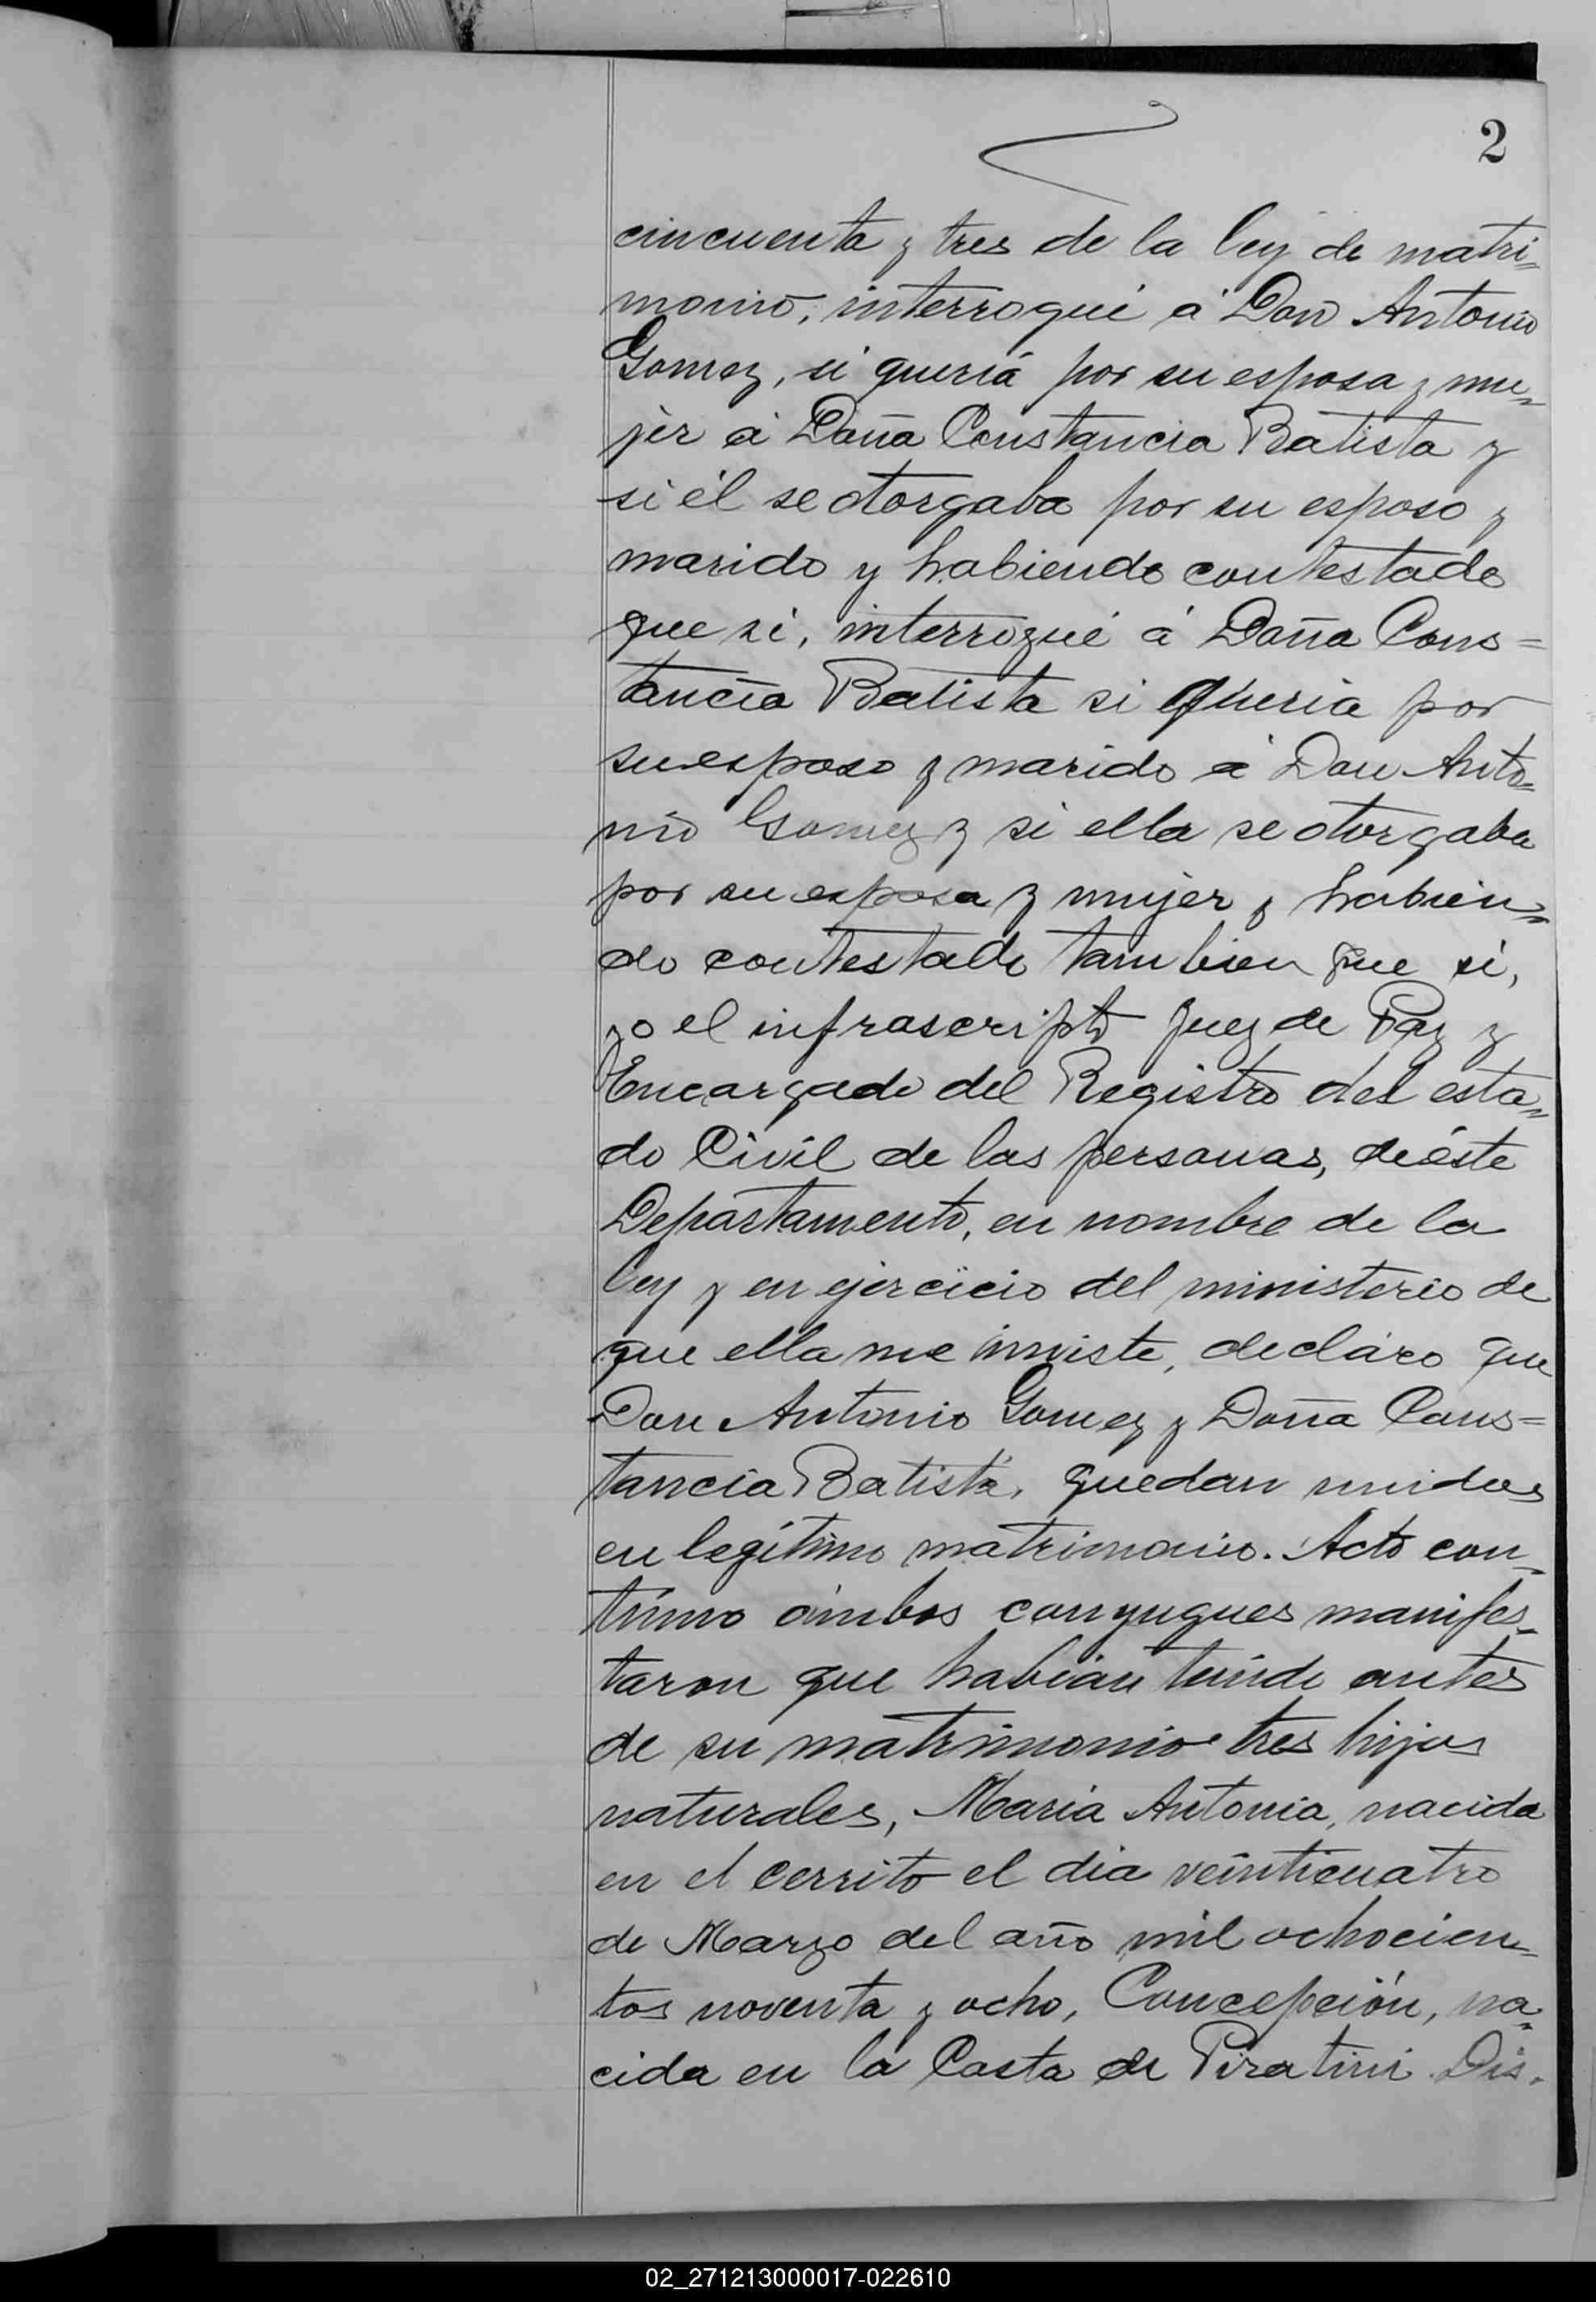 2
cincuenta y tres de la ley de matri=
monio, interrogué á Don Antonio
Gomez, si queriá por su esposa y mu=
jer á Doña Constancia Batista y
si él se otorgaba por su esposo y
marido y habiendo contestado
que si, interrogué á Doña Cons=
tancia Batista si queria por
su esposo y marido á Don Anto=
nio Gomez y si ella se otorgaba
por su esposa y mujer y habien=
do contestado tambien que si,
yo el infrascripto Juez de Paz y
Encargado del Registro del esta=
do Civil de las personas, de éste
Departamento, en nombre de la
ley y en ejercicio del ministerio de
que ella me inviste, declaro que
Don Antonio Gomez y Doña Cons=
tancia Batista, quedan unidos
en legítimo matrimonio. Acto con=
tínuo ámbos conyugues manifes=
taron que habian tenido antes
de su matrimonio tres hijos
naturales, Maria Antonia, nacida
en el Cerrito el dia veinticuatro
de Marzo del año mil ochocien=
tos noventa y ocho, Concepción, na=
cida en la Costa de Piratini Dis.
02_271213000017-022610